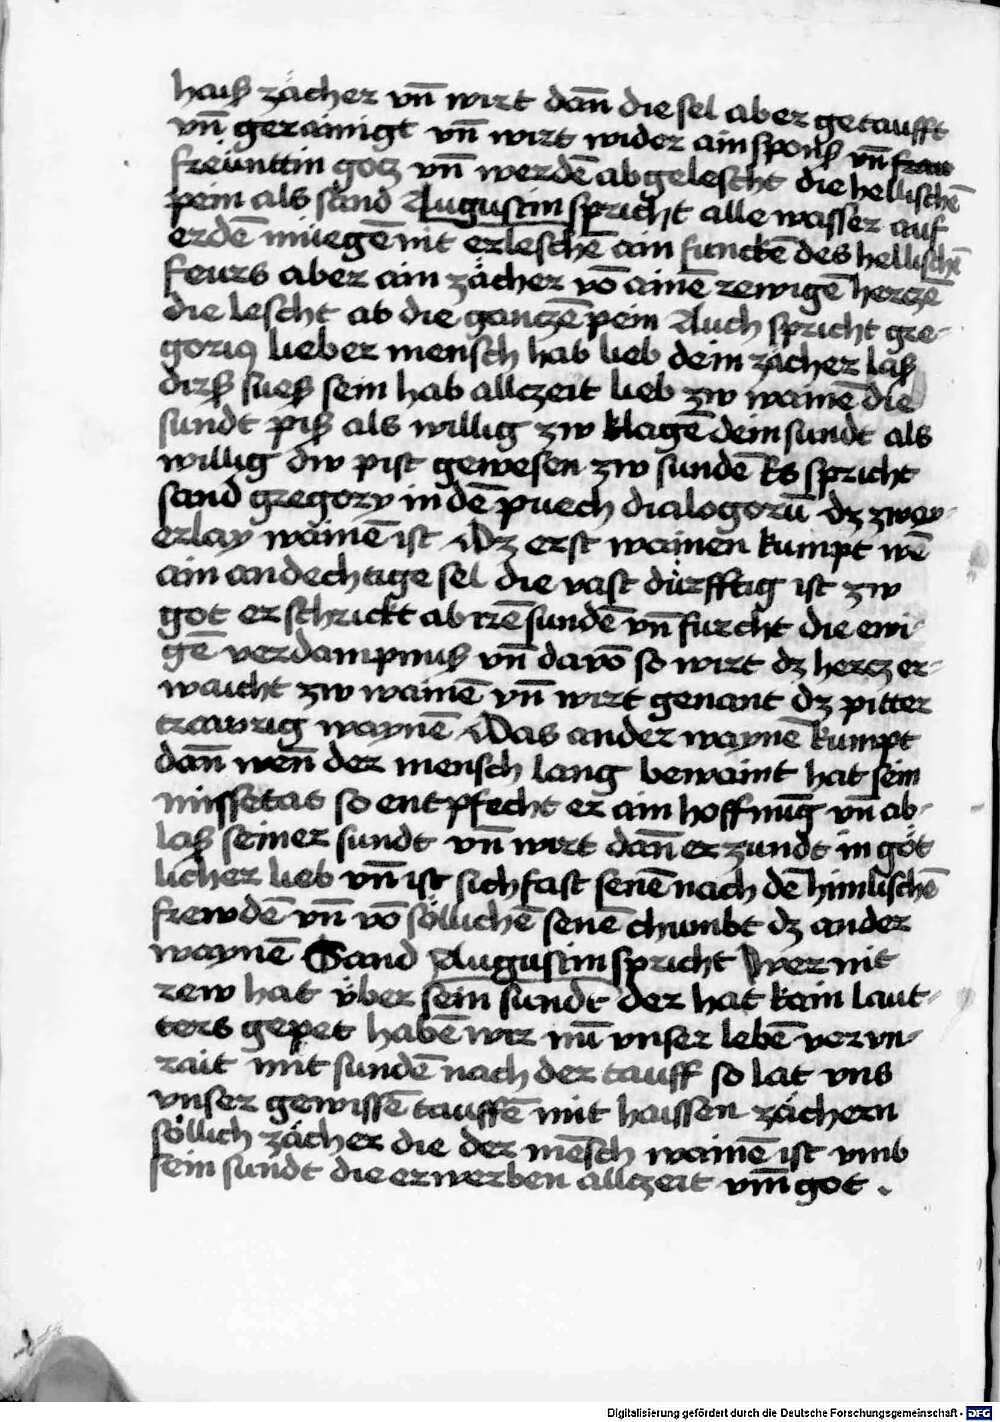 haiß zächer vn̄ wirt dan̄ die sel aber getaufft
vn̄ gerainigt vn̄ wirt wider ain sponß vn̄
freünttin gotz vn̄ werdē abgelescht die hellischē
pein als sand Augustin spricht alle wasser auf
erdē müegē nit erleschē ain funckē des hellischē
feurs aber ain zächer vō ainē rewigē herczē
die lescht ab die ganczē pein Auch spricht gre-
goriꝯ lieber mensch hab lieb dein zächer laß
dirß sueß sein hab allczeit lieb zw wainē die
sundt piß als willig zw klagē dein sundt als
willig dw pist gewesen zw sundē Es spricht
sand gregory in dē puech dialogorū dz zway-
erlay wainē ist Dz erst wainen kumpt wē
ain andechtige sel die vast dürfftig ist zw
got erschrickt ab irē sundē vn̄ furcht die ewi-
gē verdampnuß vn̄ davō so wirt dz hercz er-
waicht zw wainē vn̄ wirt genant dz pitter
trawrig waynē Das ander waynē kumpt
dan̄ wen̄ der mensch lang bewaint hat sein
missetat so entpfecht er ain hoffnūg vn̄ ab-
laß seiner sundt vn̄ wirt dan̄ erzundt in göt
licher lieb vn̄ ist sich fast senē nach dē himlischē
frewdē vn̄ vō söllichē senē chumbt dz ander
waynē Sand Augustin spricht wer nit
rew hat über sein sundt der hat kain laut-
ters gepet habē wir nū vnser lebē vervn-
rait mit sundē nach der tauff so lat vns
vnser gewissē tauffē mit haissen zächern
söllich zächer die der mēsch wainē ist vmb
sein sundt die erwerben allczeit vm̄ got .
Digitalisierung gefördert durch die Deutsche Forschungsgemeinschaft - DFG